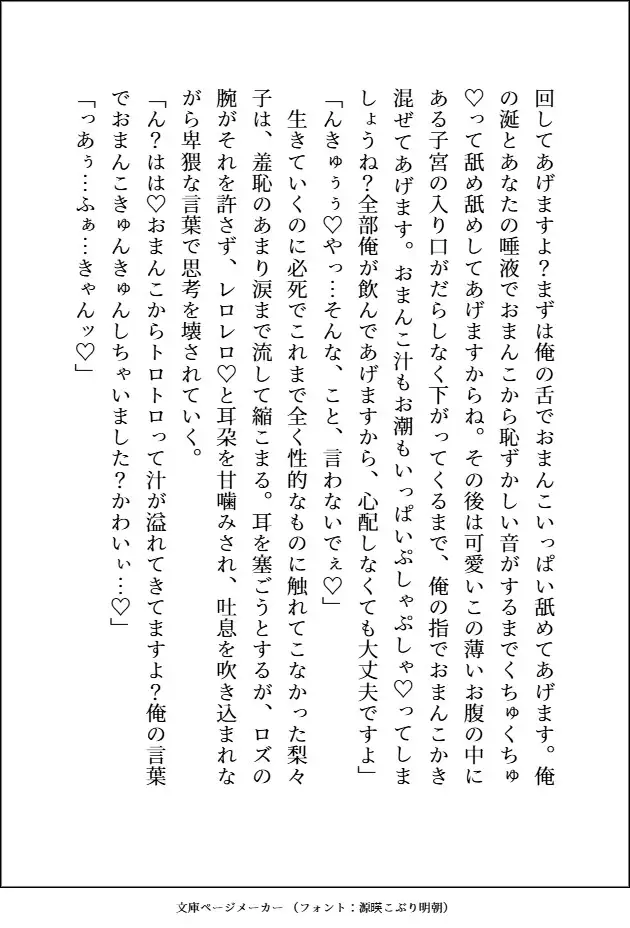 回してあげますよ？まずは俺の舌でおまんこいっぱい舐めてあげます。俺
の涎とあなたの唾液でおまんこから恥ずかしい音がするまでくちゅくちゅ
♡って舐め舐めしてあげますからね。その後は可愛いこの薄いお腹の中に
ある子宮の入り口がだらしなく下がってくるまで、俺の指でおまんこかき
混ぜてあげます。おまんこ汁もお潮もいっぱいぷしゃぷしゃ♡ってしま
しょうね？全部俺が飲んであげますから、心配しなくても大丈夫ですよ」
「んきゅぅぅ♡やっ…そんな、こと、言わないでぇ♡」
　生きていくのに必死でこれまで全く性的なものに触れてこなかった梨々
子は、羞恥のあまり涙まで流して縮こまる。耳を塞ごうとするが、ロズの
腕がそれを許さず、レロレロ♡と耳朶を甘噛みされ、吐息を吹き込まれな
がら卑猥な言葉で思考を壊されていく。
「ん？はは♡おまんこからトロトロって汁が溢れてきてますよ？俺の言葉
でおまんこきゅんきゅんしちゃいました？かわいぃ…♡」
「っあぅ…ふぁ…きゃんッ♡」
文庫ページメーカー（フォント：源暎こぶり明朝）